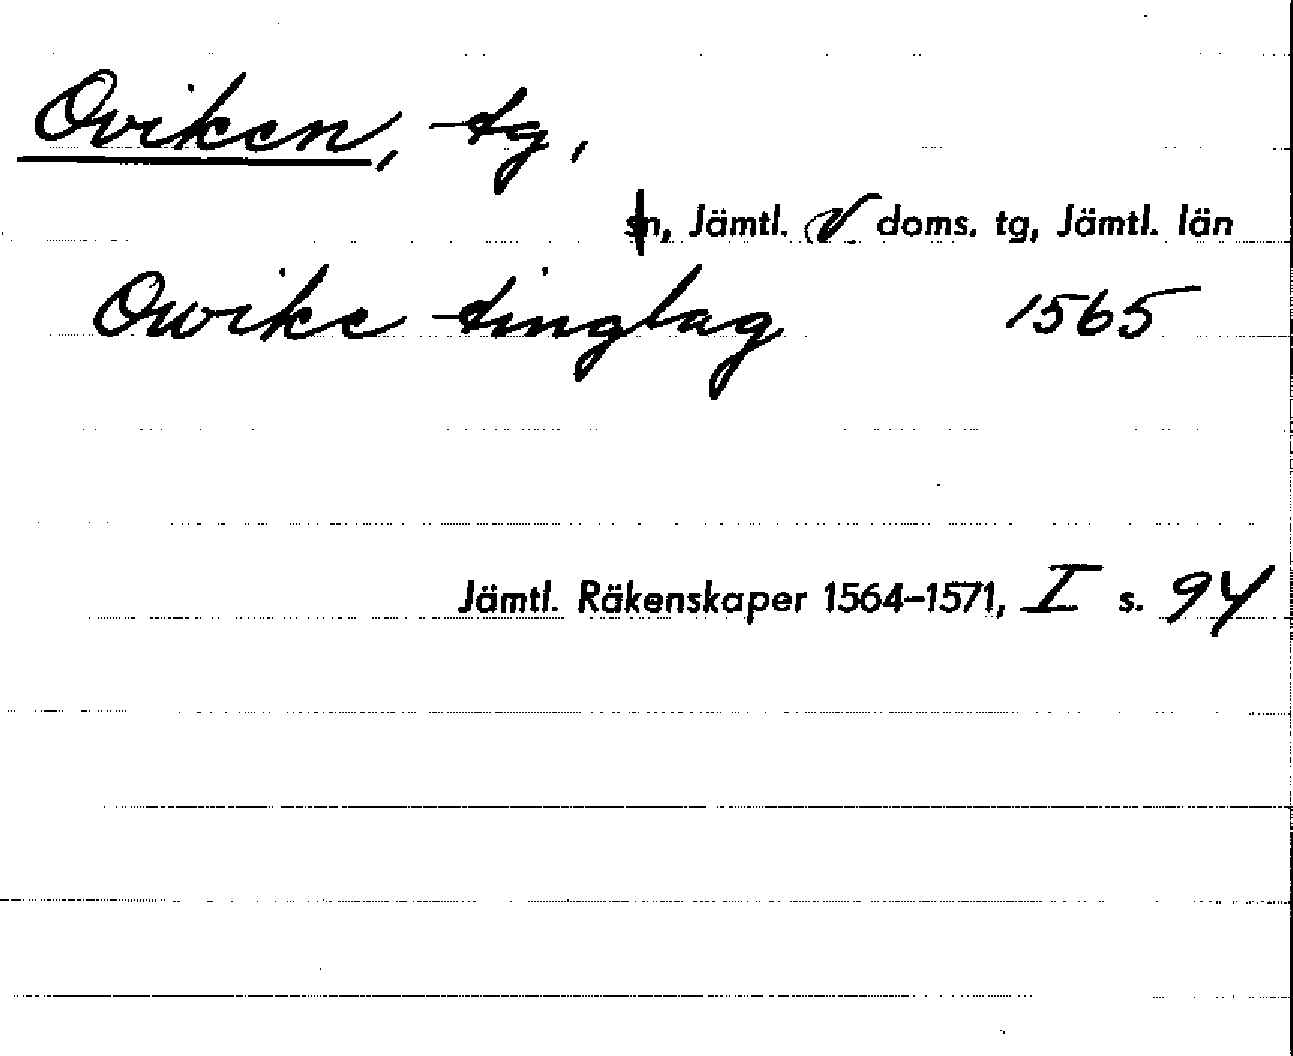 Oviken, tg,
sn, Jämtl. V doms. tg, Jämtl. län
Owike tinglag 1565
Jämtl. Räkenskaper 1564–1571, I s. 94